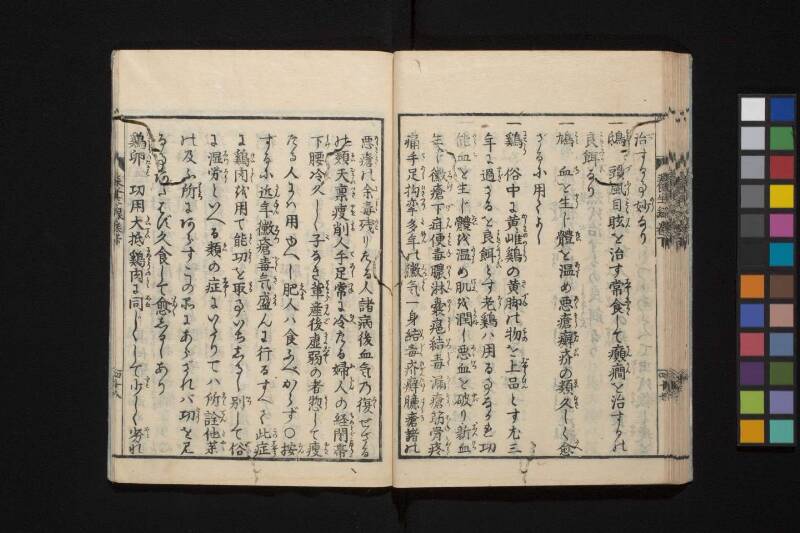 治するに妙なり
一鴟 頭風目眩を治す常食して癲癇を治するの
良餌なり
一鳩 血を生じ體を温め悪瘡癬疥の類久しく愈
ざるに用てよし
一鶏 俗中に黄雌鶏の黄脚の物を上品とす尤三
年に過ざるを良餌とす老鶏は用るなるも功
能血を生じ體を温め肌を潤し悪血を破り新血
生じ黴瘡下疳便毒膿淋嚢癰結毒漏瘡筋骨疼
痛手足拘攣多年の黴気一身結毒疥癬臁瘡諸の
悪瘡の余毒残りたる人諸病後血気乃復せざる
の類天稟痩削人手足常に冷たる婦人の経閉帯
下腰冷久しく子なき輩産後虚弱の者惣して痩
たる人には用ゆべし肥人は食ふべからず○按
するに近年黴瘡毒気盛んに行るすべて此症
に鶏肉を用て能功を取るいちじるし別して俗
に湿労といへる類の症にいたりては所詮他薬
の及ふ所にあらずこの品にあらざれバ功を足
久食して愈しるしあり
鶏卵 功用大抵鶏肉に同じくして少しく劣れ